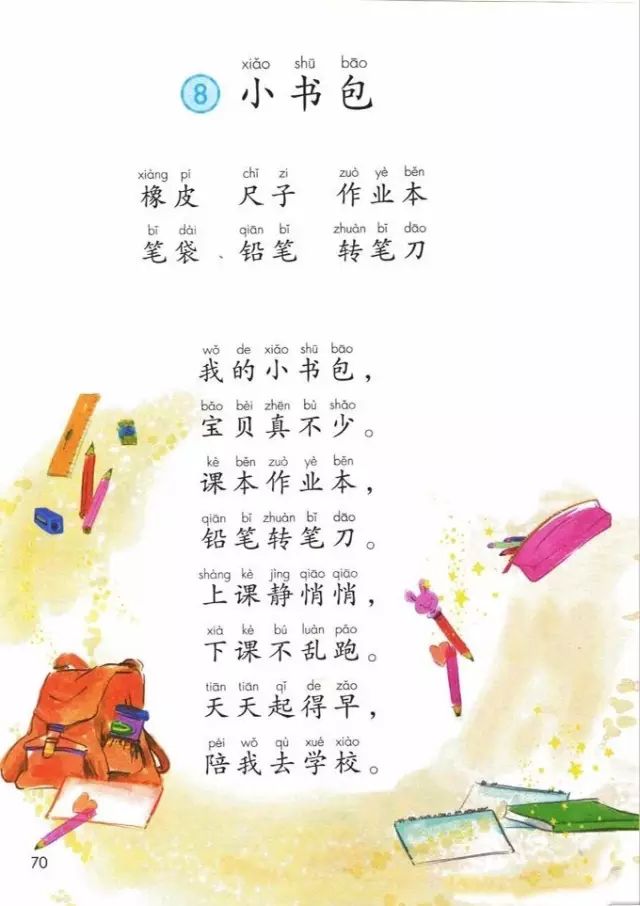 xiǎo shū bāo
8 小书包
xiàng pí chǐ zi zuò yè běn
橡皮 尺子 作业本
bǐ dài qiān bǐ zhuàn bǐ dāo
笔袋 铅笔 转笔刀
wǒ de xiǎo shū bāo
我的小书包，
bǎo bèi zhēn bù shǎo
宝贝真不少。
kè běn zuò yè běn
课本作业本，
qiān bǐ zhuàn bǐ dāo
铅笔转笔刀。
shàng kè jìng qiāo qiāo
上课静悄悄，
xià kè bú luàn pǎo
下课不乱跑。
tiān tiān qǐ de zǎo
天天起得早，
péi wǒ qù xué xiào
陪我去学校。
70